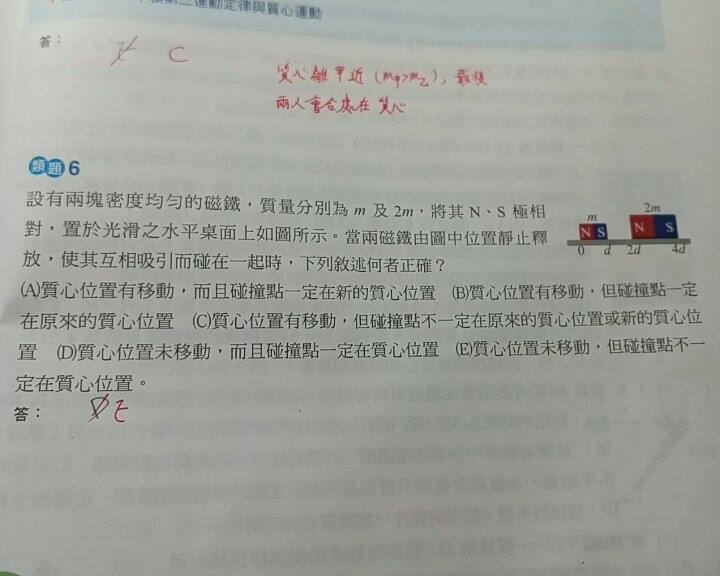 第三運動定律與質心運動
答：
C
質心離甲近(m甲>m乙)，最後
兩人會合處在質心
類題 6
設有兩塊密度均勻的磁鐵，質量分別為 m 及 2m，將其 N、S 極相
對，置於光滑之水平桌面上如圖所示。當兩磁鐵由圖中位置靜止釋
放，使其互相吸引而碰在一起時，下列敘述何者正確？
m 2m
N S N S
0 d 2d 4d
(A)質心位置有移動，而且碰撞點一定在新的質心位置 (B)質心位置有移動，但碰撞點一定
在原來的質心位置 (C)質心位置有移動，但碰撞點不一定在原來的質心位置或新的質心位
置 (D)質心位置未移動，而且碰撞點一定在質心位置 (E)質心位置未移動，但碰撞點不一
定在質心位置。
答：
D E